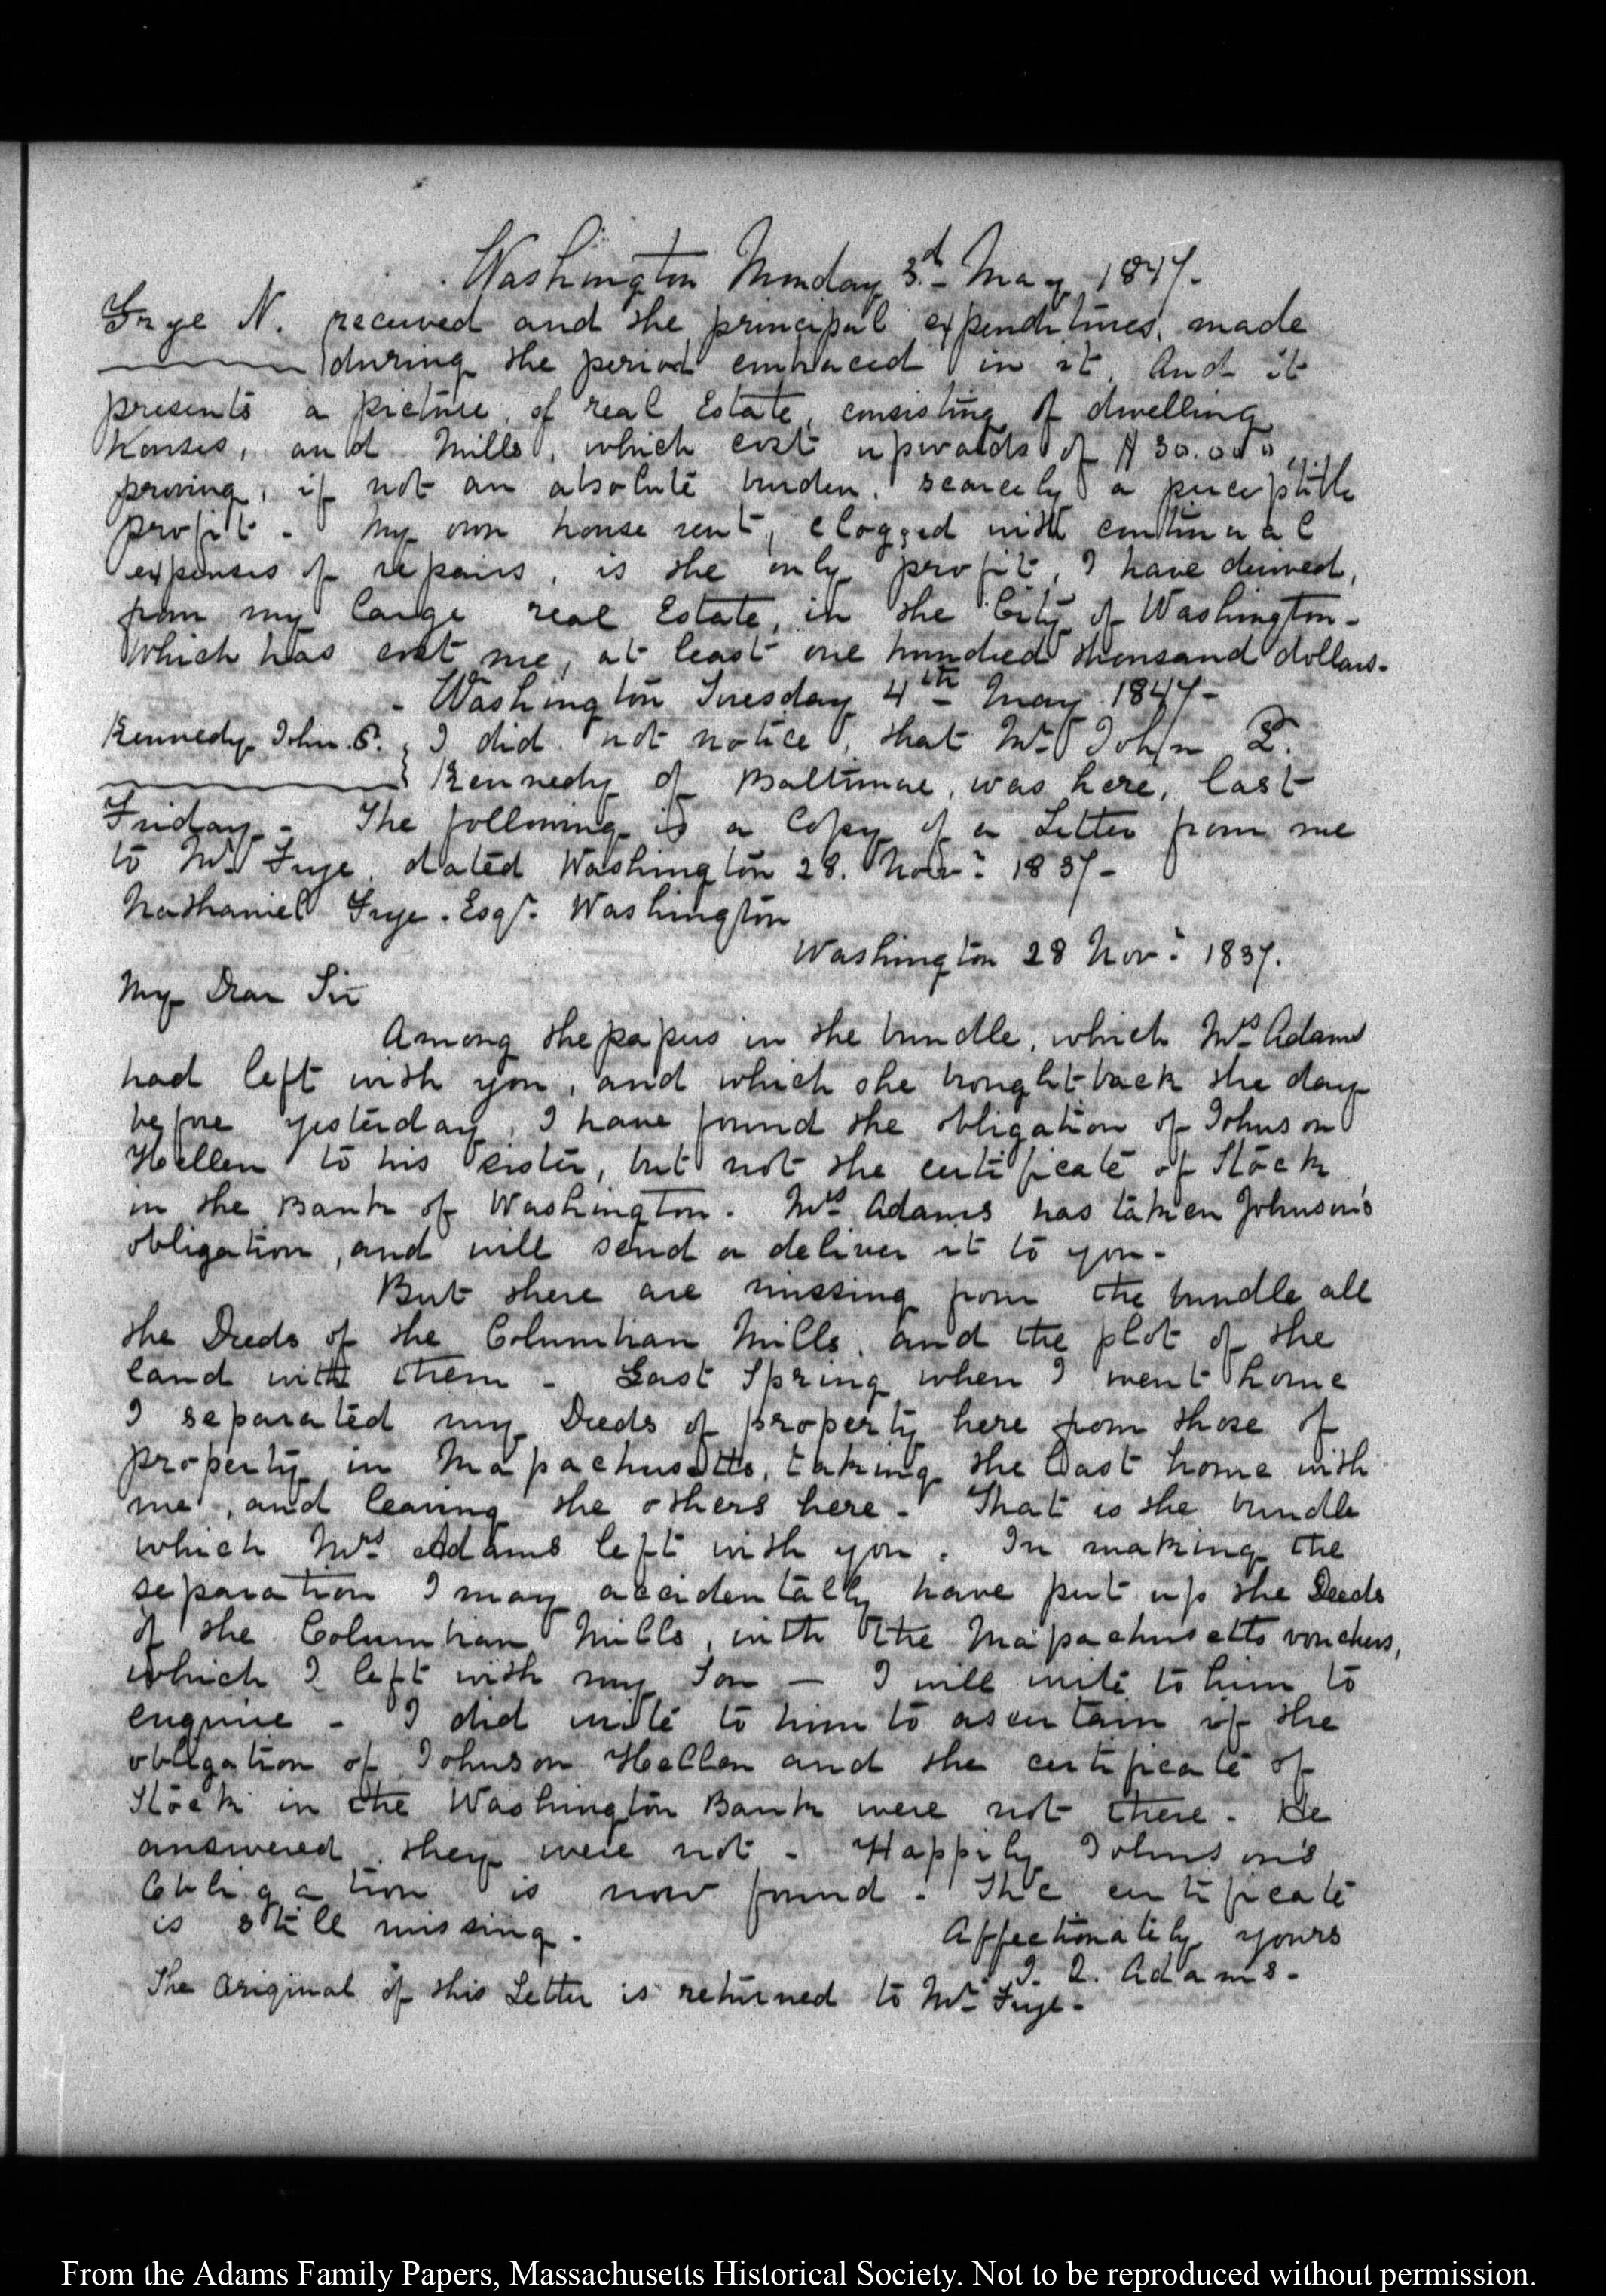 Washington Monday 3.d May 1847.
Frye N. received and the principal expenditures, made
during the period embraced in it. And it
presents a picture, of real Estate, consisting of dwelling
Houses, and Mills, which cost upwards of $30.000,
proving, if not an absolute burden, scarcely a perceptible
profit. My own house rent, clogged with continual
expenses of repairs, is the only profit, I have derived,
from my large real Estate, in the City of Washington-
which has cost me, at least one hundred thousand dollars-
- Washington Tuesday 4th May 1847-
Kennedy John. P. I did not notice, that Mr John P.
Kennedy of Baltimore, was here, last
Friday- The following is a Copy of a Letter from me
to Mr Frye, dated Washington 28. Novr: 1837-
Nathaniel Frye. Esqr. Washington
Washington 28 Nov: 1837.
My Dear Sir
Among the papers in the bundle, which Mrs Adams
had left with you, and which she brought back the day
before yesterday, I have found the obligation of Johnson
Hellen to his sister, but not the certificate of Stock,
in the Bank of Washington. Mrs Adams has taken Johnson's
obligation, and will send or deliver it to you-
But there are missing from the bundle all
the Deeds of the Columbian Mills, and the plot of the
land with them- Last Spring when I went home
I separated my Deeds of property here from those of
property in Massachusetts, taking the last home with
me, and leaving the others here- That is the bundle
which Mrs Adams left with you. In making the
separation I may accidentally have put up the Deeds
of the Columbian Mills, with the Massachusetts vouchers,
which I left with my Son — I will write to him to
enquire- I did write to him to ascertain if the
obligation of Johnson Hellen and the certificate of
Stock in the Washington Bank were not there- He
answered they were not- Happily Johnson's
Obligation is now found- The certificate
is still missing.
Affectionately yours
J. Q. Adams-
The Original of this Letter is returned to Mr Frye-
From the Adams Family Papers, Massachusetts Historical Society. Not to be reproduced without permission.